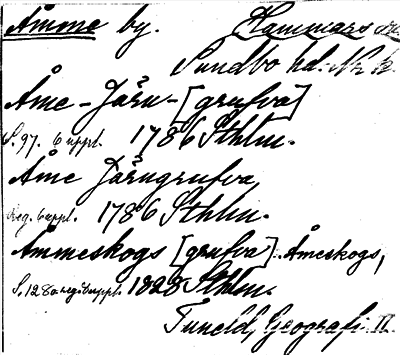 Åmme by. Hammars
Sundbo hd. Nke.
Åme-Järn-[grufva]
S. 97. 6 uppl. 1786 Sthlm.
Åme Järngrufva
Reg. 6 uppl. 1786 Sthlm.
Ammeskogs [grufva]. Åmeskogs,
S. 128 o. reg. 8 uppl. 1828 Sthlm.
Tuneld, Geografi II.